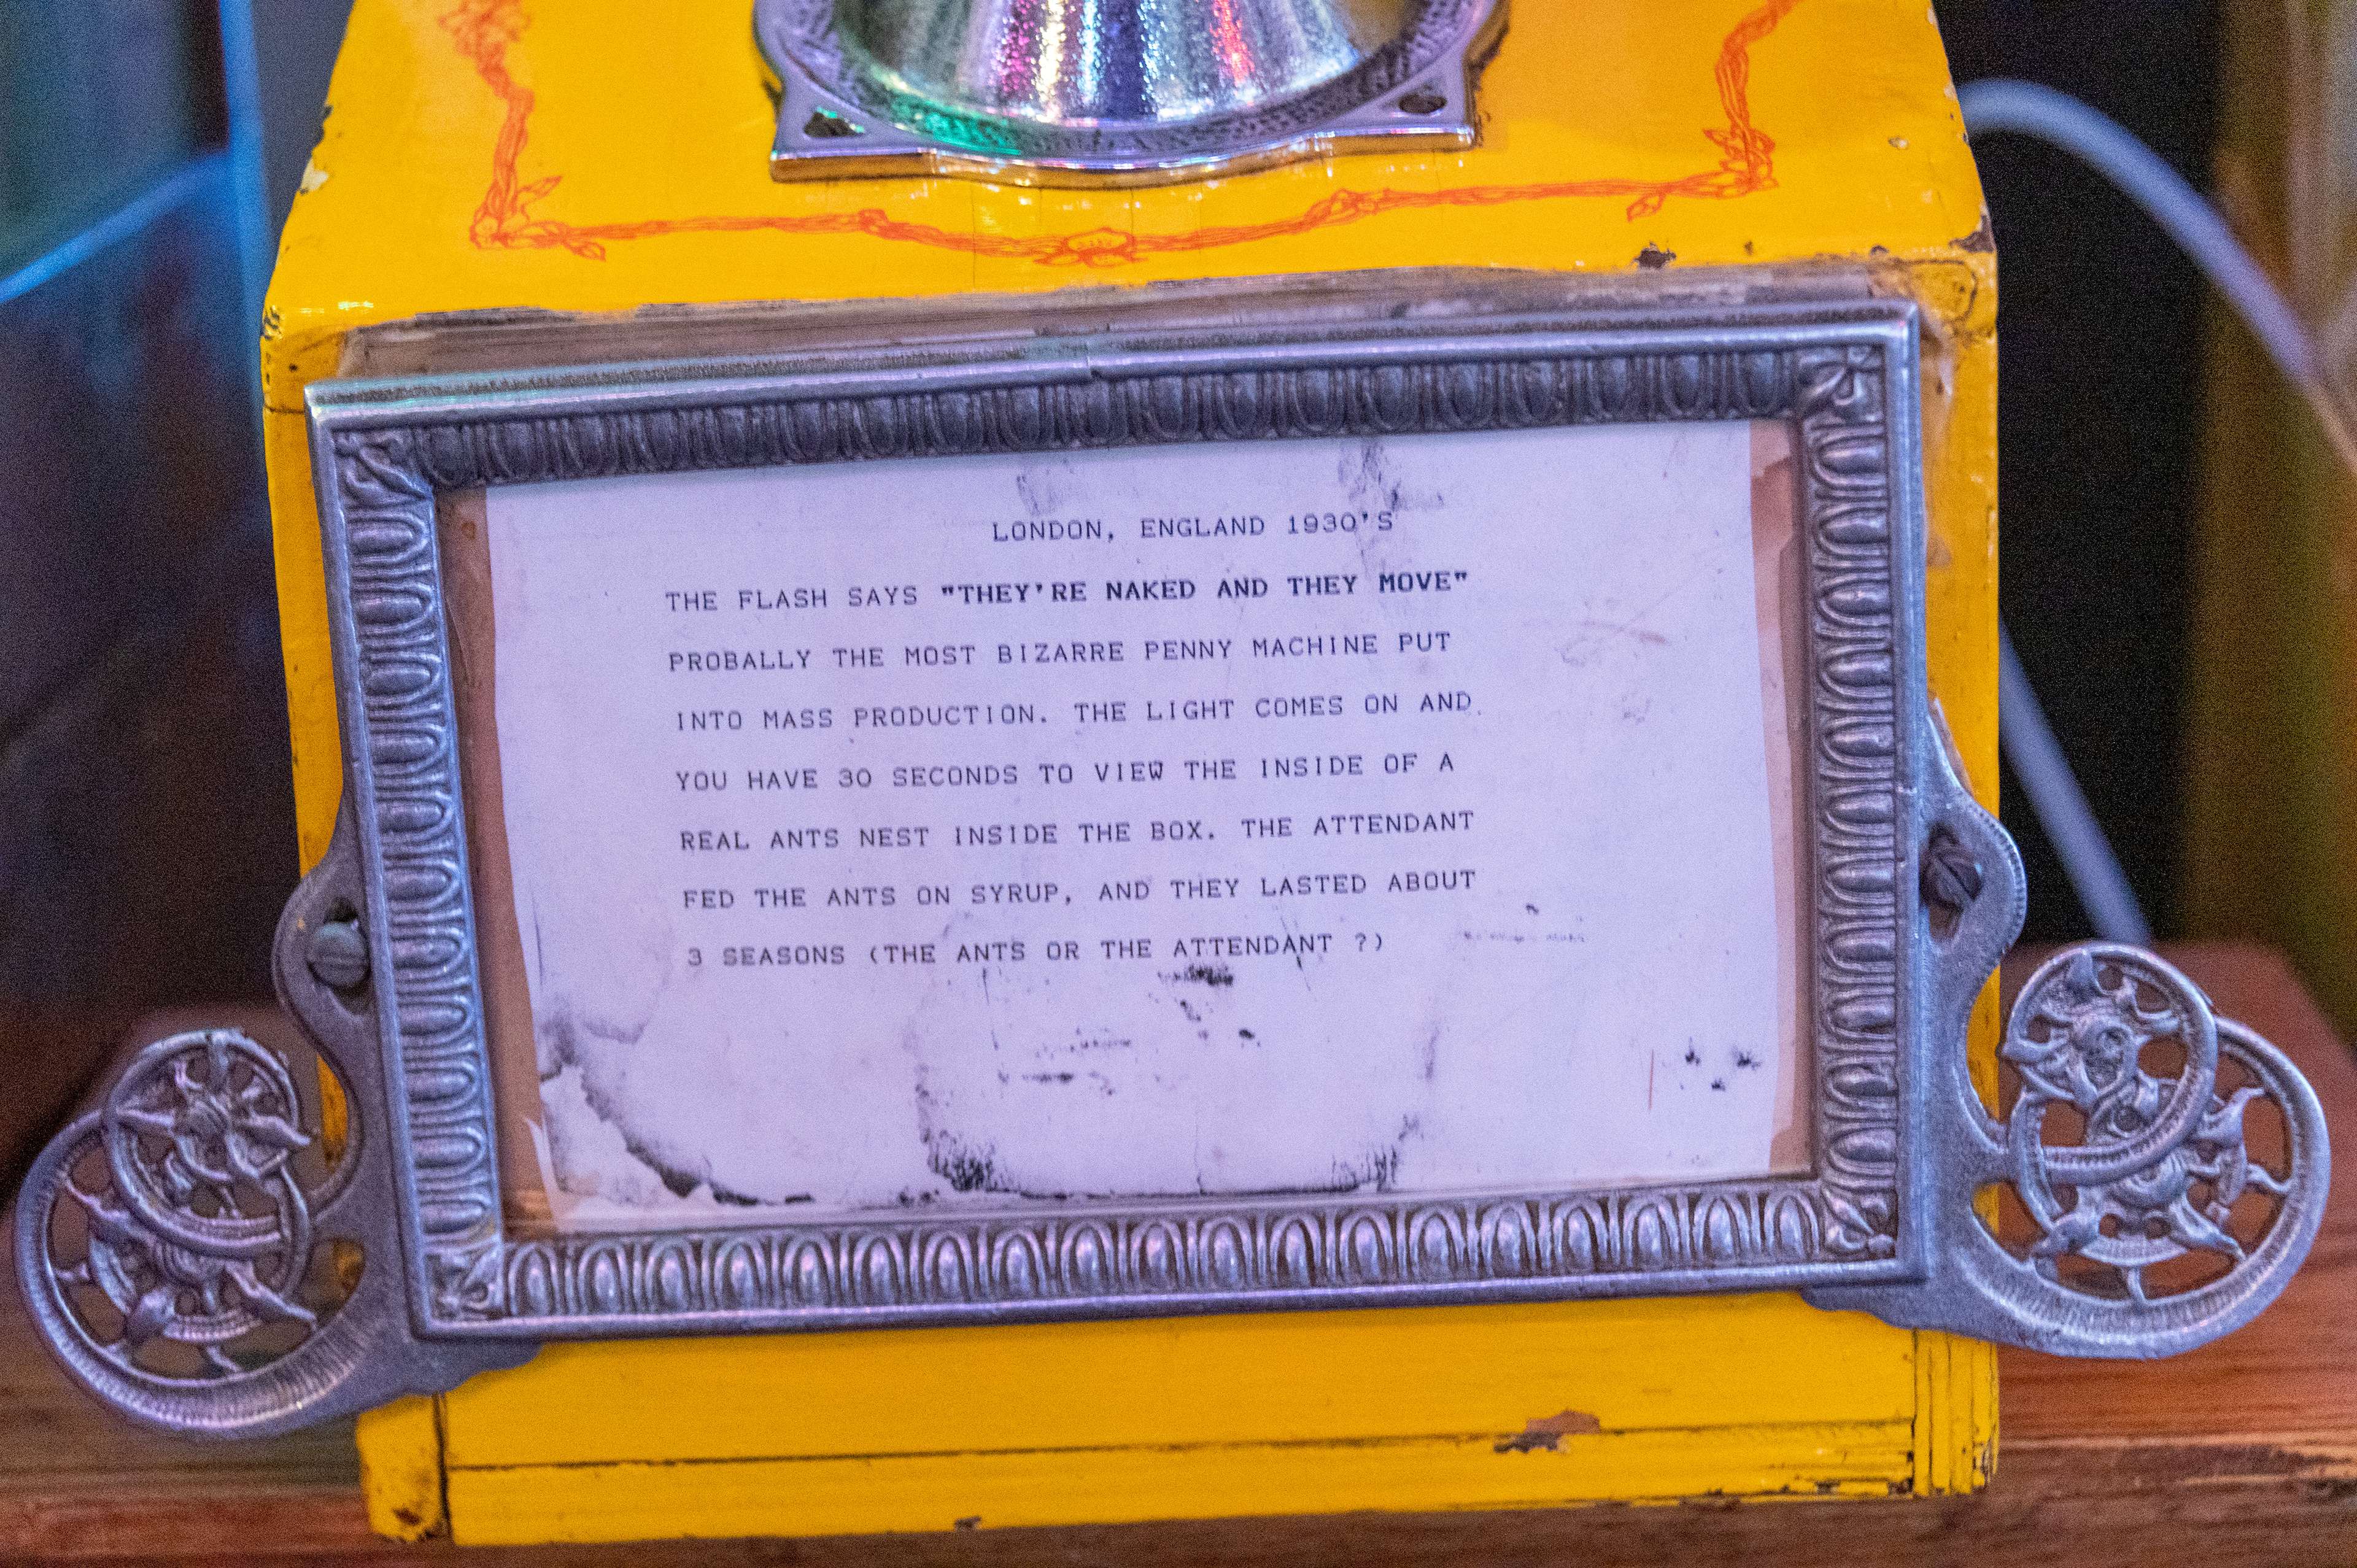 LONDON, ENGLAND 1930'S
THE FLASH SAYS "THEY'RE NAKED AND THEY MOVE"
PROBALLY THE MOST BIZARRE PENNY MACHINE PUT
INTO MASS PRODUCTION. THE LIGHT COMES ON AND
YOU HAVE 30 SECONDS TO VIEW THE INSIDE OF A
REAL ANTS NEST INSIDE THE BOX. THE ATTENDANT
FED THE ANTS ON SYRUP, AND THEY LASTED ABOUT
3 SEASONS (THE ANTS OR THE ATTENDANT ?)